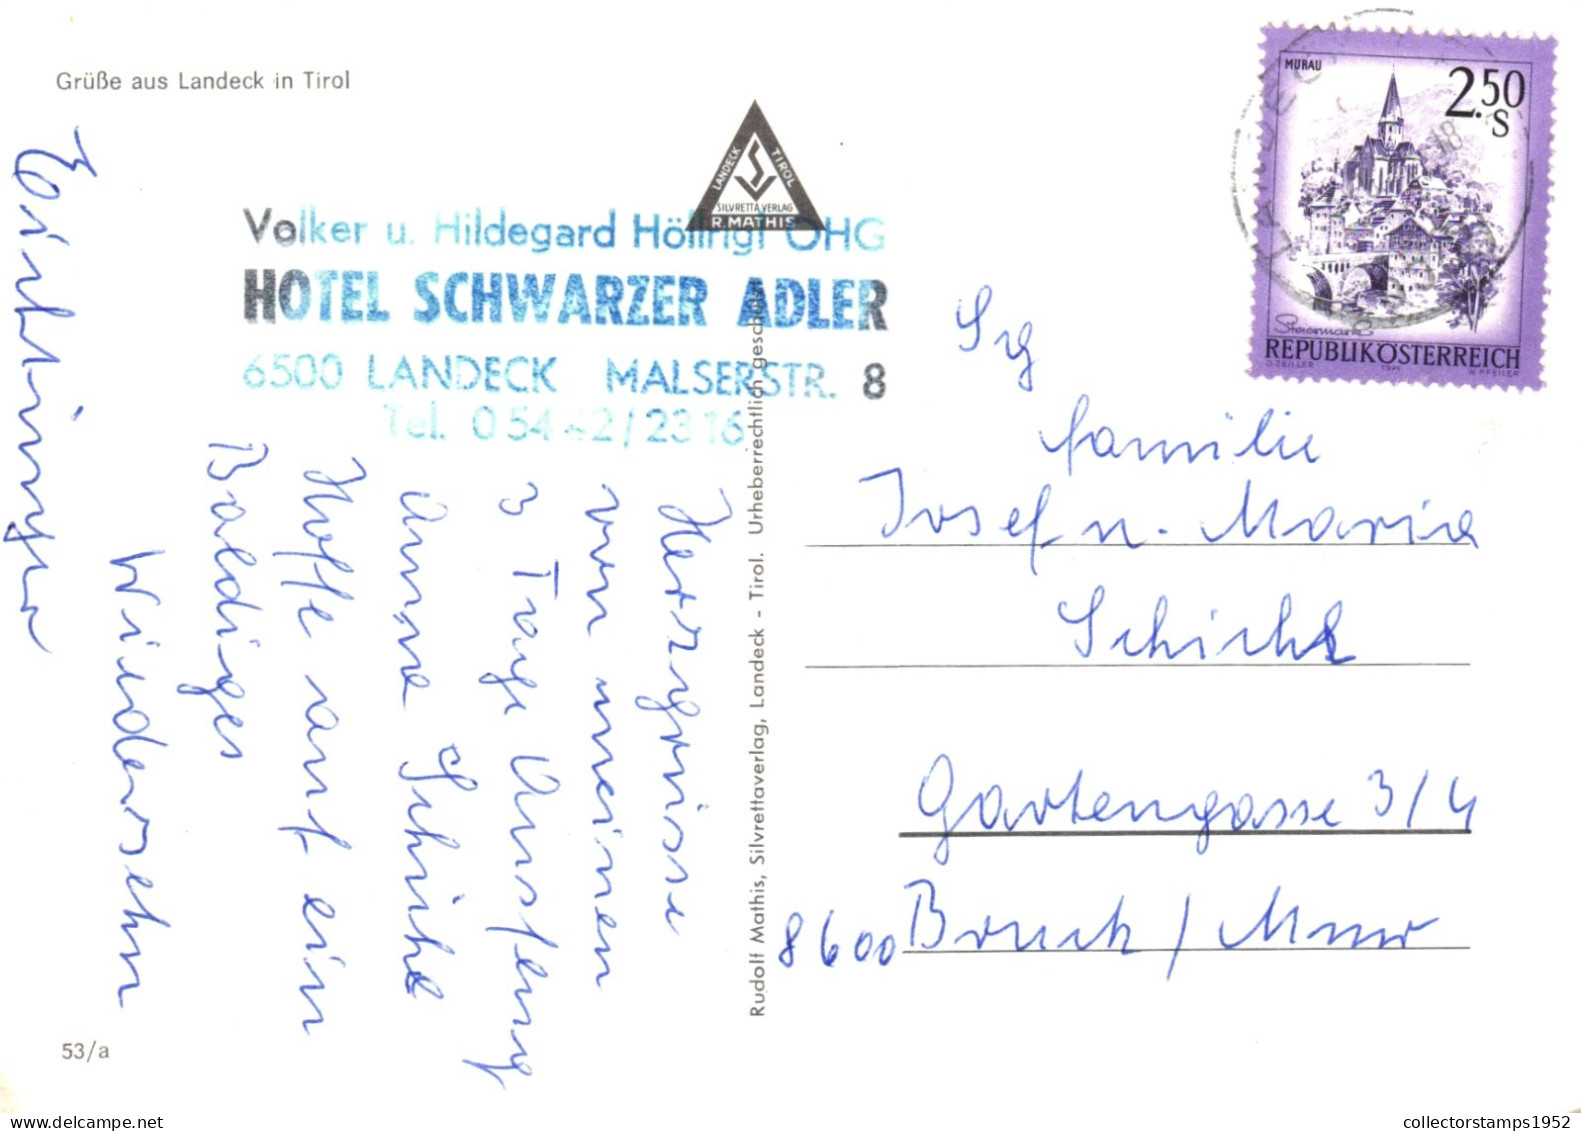 Grüße aus Landeck in Tirol
LANDECK TIROL
SILVRETTAVERLAG
R. MATHIS
Volker u. Hildegard Höllrigl OHG
HOTEL SCHWARZER ADLER
6500 LANDECK MALSERSTR. 8
Tel. 0 54 42 / 23 16
Herzgrüsse
von meinen
3 Tage
Hoffe auf ein
Baldiges
Wiedersehn
53/a
Rudolf Mathis, Silvrettaverlag, Landeck - Tirol. Urheberrechtlich geschützt
MURAU
2.50
S
Steiermark
REPUBLIK ÖSTERREICH
O. ZEILLER W. PFEILER
LANDECK
18
Sg
Familie
Josef u. Maria
Gartengasse 3/4
8600 Bruck / Mur
collectorstamps1952